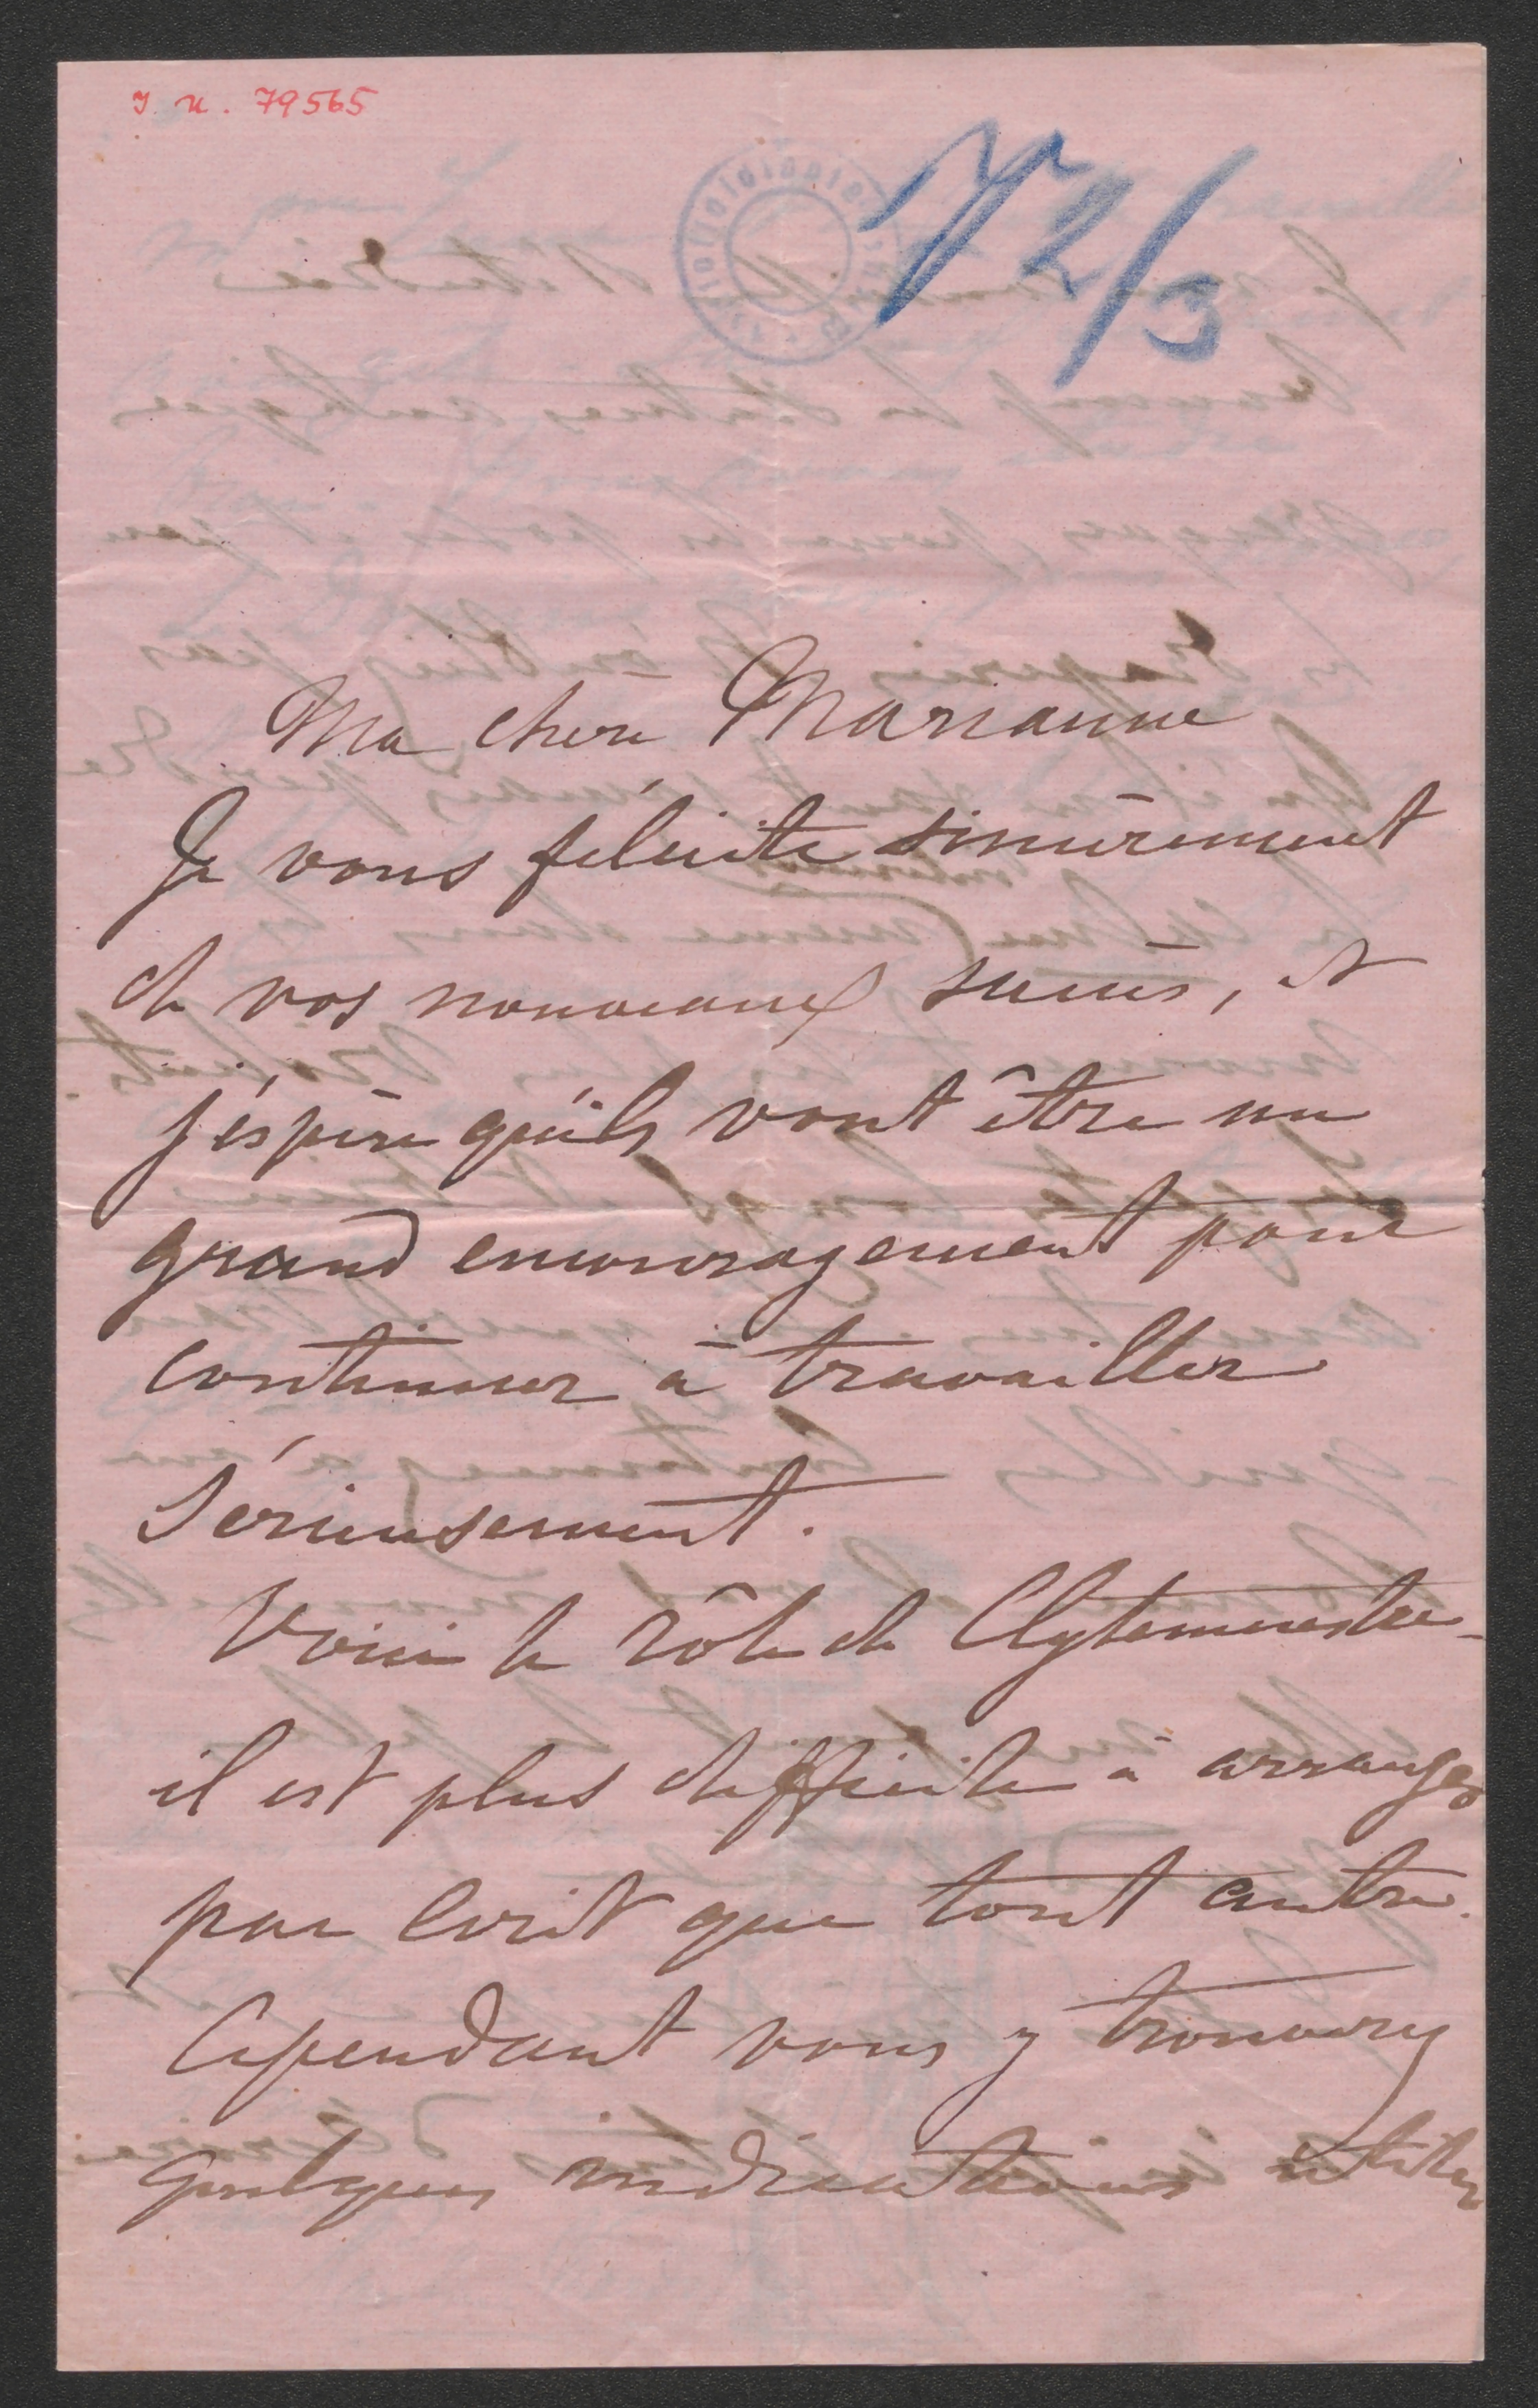 J. N. 79565
V 2/3
Ma chere Marianne
Je vous félicite sincèrement
de vos nouveaux succès, et
j'éspère qu'ils vont être un
grand encouragement pour
continuer à travailler
sérieusement.
Voici le rôle de Clytemnestre
il est plus difficile à arranger
par écrit que tout autre.
Cependant vous y trouverez
quelques indications utiles